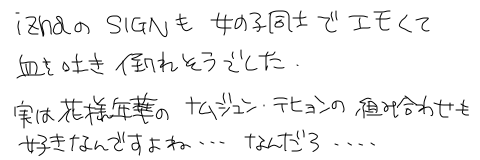 izhaの SIGNも 女の子同士で エモくて
血を吐き 倒れそうでした.
実は花様年華の ナムジュン・テヒョンの 組み合わせも
好きなんですよね… なんだろ ‥‥